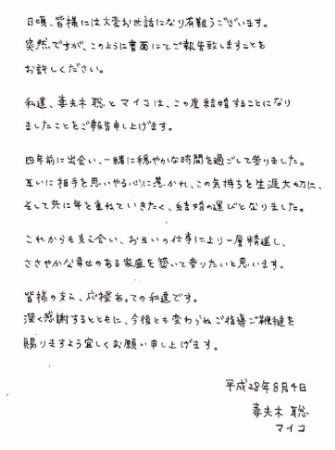 日頃、皆様には大変お世話になり有難うございます。
突然ですが、このように書面にてご報告致しますことを
お許しください。
私達、妻夫木 聡 と マイコは、この度結婚することになり
ましたことをご報告申し上げます。
四年前に出会い、一緒に穏やかな時間を過ごして参りました。
互いに相手を思いやる心に惹かれ、この気持ちを生涯大切に、
そして共に年を重ねていきたく、結婚の運びとなりました。
これからも支え合い、お互いの仕事により一層精進し、
ささやかな幸せのある家庭を築いて参りたいと思います。
皆様の支え、応援あっての私達です。
深く感謝するとともに、今後とも変わらぬご指導ご鞭撻を
賜りますよう宜しくお願い申し上げます。
平成28年8月4日
妻夫木 聡
マイコ